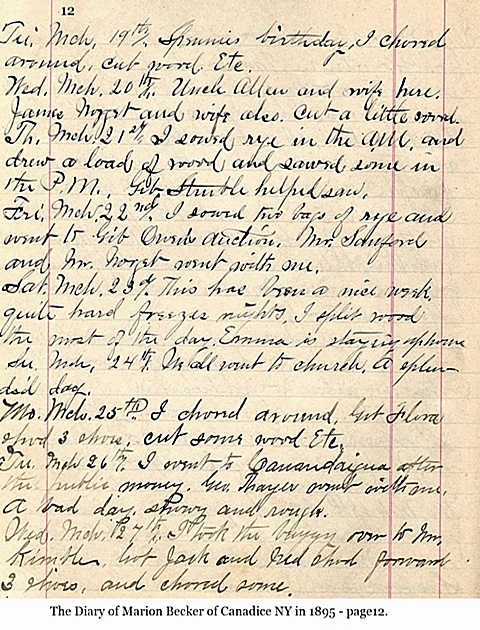 12
Tu. Mch. 19th. Spinnies birthday, I chored
around, cut wood Etc.
Wed. Mch. 20th. Uncle Allen and wife here.
James Nogget and wife also. Cut a little wood.
Th. Mch. 21st. I sowed rye in the A.M. and
drew a load of wood and sawed some in
the P.M. Gib Struble helped saw.
Fri. Mch. 22nd. I sowed two bags of rye and
went to Gib Owen auction. Mr.
and Mr. Nogget went with me.
Sat. Mch. 23d. This has been a nice week,
quite hard freezes nights, I split wood
the most of the day. Emma is staying home
Su. Mch. 24th. We all went to church, A splen-
did day.
Mo. Mch. 25th I chored around, Got Flora
shod 3 shoes, cut some wood Etc.
Tu. Mch 26th. I went to Canandaigua after
the public money. Geo. Thayer went with me.
A bad day, snowy and rough.
Wed. Mch. 27th. I took the buggy over to Mr.
Kimble, Got Jack and Ned shod forward
3 shoes, and chored some.
The Diary of Marion Becker of Canadice NY in 1895 - page12.